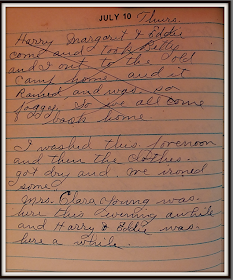 JULY 10 Thurs.
Harry Margarit & Eddie
come and took Billy
and I out to the old
camp home and it
Rained and was so
foggy so we all come
back home.
I washed this forenoon
and then the clothes
got dry and we ironed
some
Mrs. Clara Young was
here this evening awhile
and Harry & Eddie was
here a while.